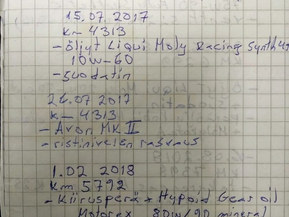 15.07.2017
km 4313
- öljyt Liqui Moly Racing Synth 4T
10w-60
- suodatin
26.07 2017
k— 4313
- Avon MK II
- ristinivelen rasvaus
1.02 2018
Km 5792
- Kiirusperä + Hypoid Gear oil
80w/90 mineral